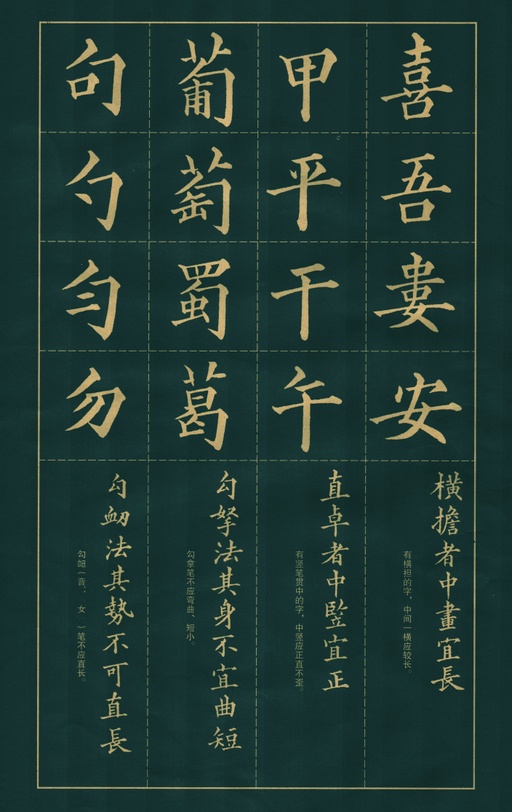 喜吾婁安
橫擔者中畫宜長
有横担的字，中间一横应较长。
甲平干午
直卓者中竪宜正
有竖笔贯中的字，中竖应正直不歪。
葡萄蜀葛
勾拏法其身不宜曲短
勾拿笔不应弯曲、短小。
句勺匀勿
勾㔭法其勢不可直長
笔不应直长。